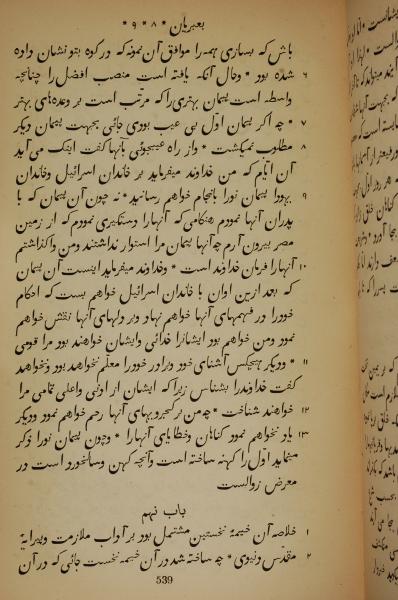 بعبریان * ۸ * ۹ *
باش که بسازی همه را موافق آن نمونه که در کوه بتو نشان داده
۶ شده بود * وحال آنکه یافته است منصب افضل را چنانچه
واسطه است پیمان بهتری را که مرتب است بر وعده‌های بهتر
۷ * چه اگر پیمان اوّل بی عیب بودی جائی بجهت پیمان دیگر
۸ مطلوب نمیگشت * واز راه عیبجوئی بآنها گفت اینک می آید
آن ایّام که من خداوند میفرماید بر خاندان اسرائیل وخاندان
۹ یهودا پیمان نورا بانجام خواهم رسانید * نه چون آن پیمان که با
پدران آنها نمودم هنگامی که آنها را دستگیری نمودم که از زمین
مصر بیرون آرم چه آنها پیمان مرا استوار نداشتند ومن واگذاشتم
۱۰ آنها را فرمان خداوند است * وخداوند میفرماید اینست آن پیمان
که بعد ازین اوان با خاندان اسرائیل خواهم بست که احکام
خود را در فهمهای آنها خواهم نهاد وبر دلهای آنها نقش خواهم
نمود ومن خواهم بود ایشانرا خدائی وایشان خواهند بود مرا قومی
۱۱ * ودیگر هیچکس آشنای خود وبرادر خود را معلّم نخواهد بود ونخواهد
گفت خداوند را بشناس زیرا که ایشان از ادنی واعلی تمامی مرا
۱۲ خواهند شناخت * چه من بر کجرویهای آنها رحم خواهم نمود ودیگر
۱۳ یاد نخواهم نمود گناهان وخطایای آنها را * وچون پیمان نورا ذکر
مینماید اوّل را کهنه ساخته است وآنچه کهن وسالخورد است در
معرض زوالست
باب نهم
۱ خلاصه آن خیمهٔ نخستین مشتمل بود بر آداب ملازمت وپیرایهٔ
۲ مقدّس دنیوی * چه ساخته شد در آن خیمهٔ نخست جائی که در آن
539